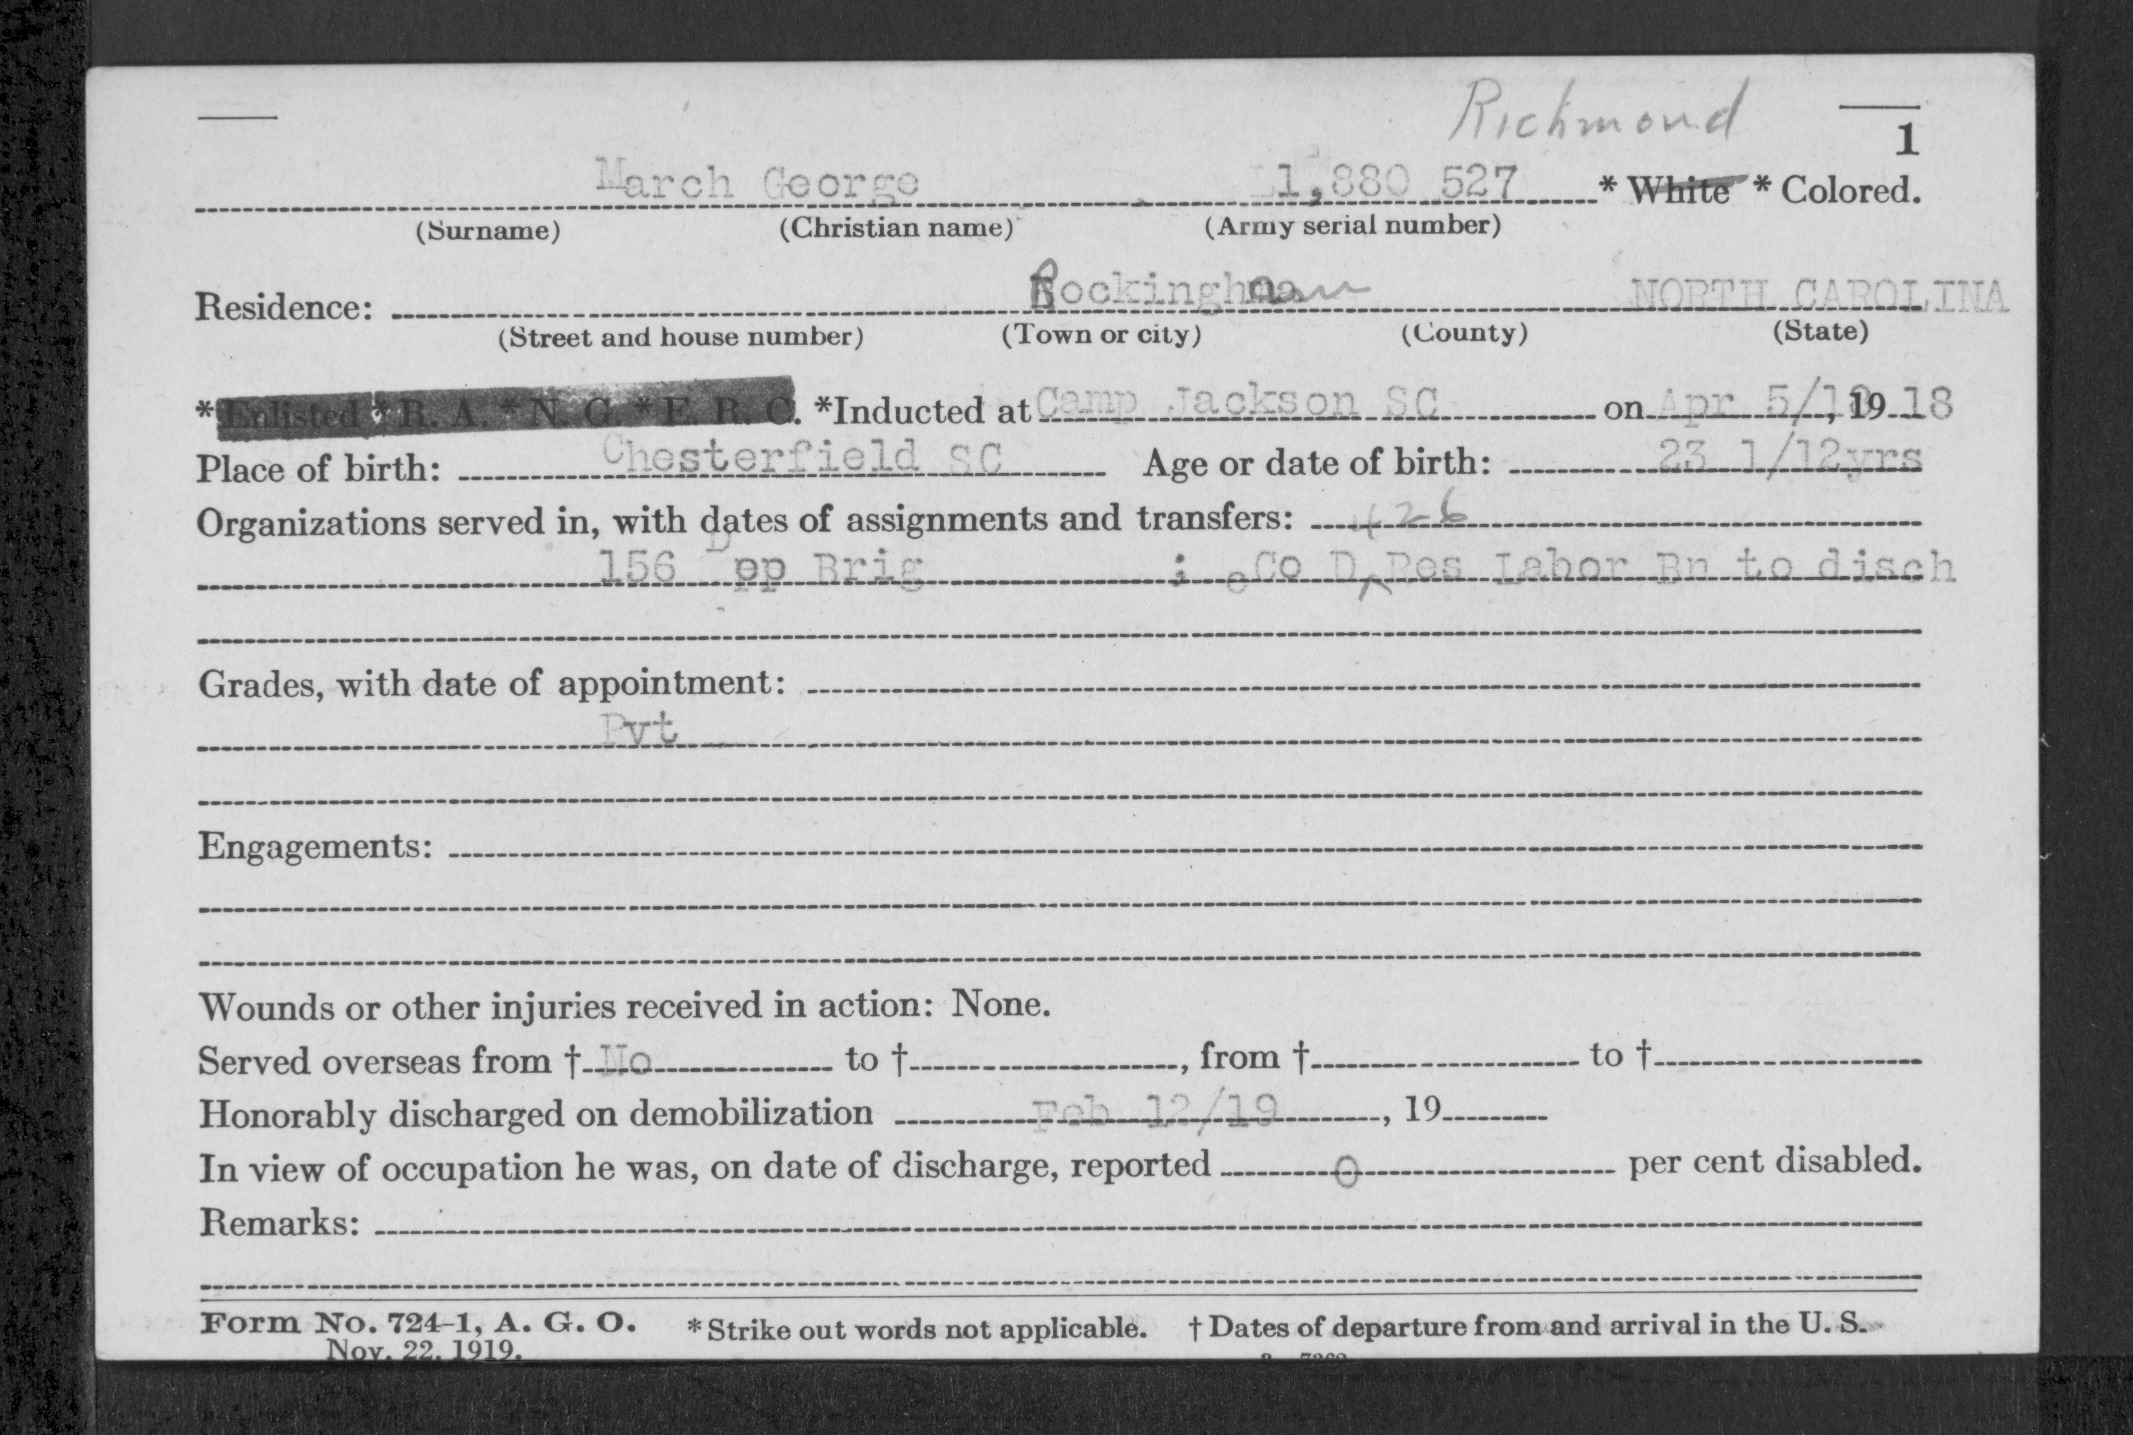 Richmond
1
March George 1,880 527 * White * Colored.
(Surname) (Christian name) (Army serial number)
Residence: Rockingham NORTH CAROLINA
(Street and house number) (Town or city) (County) (State)
* Enlisted * R. A. * N. G. * E. R. C. *Inducted at Camp Jackson SC on Apr 5/18, 19 18
Place of birth: Chesterfield SC Age or date of birth: 23 1/12yrs
Organizations served in, with dates of assignments and transfers: 426
156 Dep Brig ; Co D Res Labor Bn to disch
Grades, with date of appointment:
Pvt
Engagements:
Wounds or other injuries received in action: None.
Served overseas from † No to †, from † to †
Honorably discharged on demobilization Feb 12/19, 19
In view of occupation he was, on date of discharge, reported 0 per cent disabled.
Remarks:
Form No. 724-1, A. G. O. * Strike out words not applicable. † Dates of departure from and arrival in the U. S.
Nov. 22, 1919.